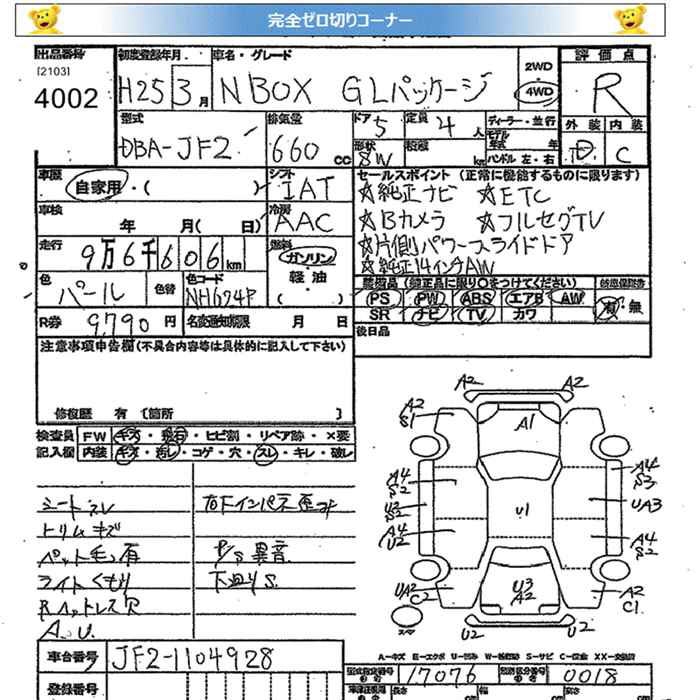 完全ゼロ切りコーナー
出品番号 初度登録年月 車名・グレード 2WD 評価点
[2103]
4002 H25 3月 N BOX GLパッケージ 4WD R
型式 排気量 ドア 定員 ディーラー・並行 外装 内装
DBA-JF2 660 cc 5 4人 モデル年式 年 D C
形状 5W 積載 kg ハンドル 左・右
車歴 シフト セールスポイント (正常に機能するものに限ります)
自家用・( ) IAT ☆純正ナビ ☆ETC
車検 冷房 ☆Bカメラ ☆フルセグTV
年 月( 日) AAC ☆片側パワースライドドア
走行 燃料 ☆純正14インチAW
9万6千606km ガソリン
軽油
・( )
色 パール 色替 色コード NH624P
装備品 (純正品に限り○をつけてください)
PS PW ABS エアB AW 有・無
SR ナビ TV カワ
R券 9,790円 名変通知期限 月 日 後日品
注意事項申告欄(不具合内容等は具体的に記入して下さい)
修復歴 有 [箇所 ]
検査員 FW キズ・飛石・ヒビ割・リペア跡・×要
記入欄 内装 キズ・汚し・コゲ・穴・スレ・キレ・破レ
シートスレ
トリムキズ
ペット毛有
ライトくもり
Rヘッドレス穴
A.U.
右Fインパネ歪コア
P/S異音
下廻りS.
A2 A2
A2 S1 A1
A4 S2 A4 S3
U3 S2 U1 UA3
A4 U2 A4 S2
UA2 C2 U3 A2 A2 C1
U2 U2
A-キズ E-エクボ U-凹み W-補修跡 S-サビ C-腐食 XX-交換済
車台番号 JF2-1104928
登録番号
型式指定番号 17076 類別区分番号 0018
長さ 幅 高さ